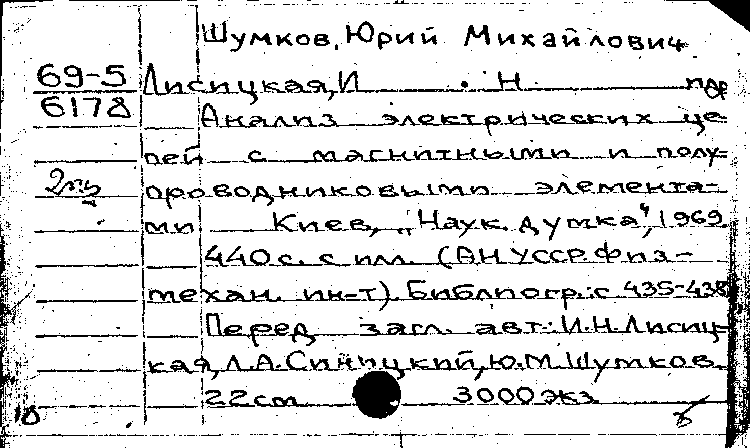 Шумков, Юрий Михайлович
69-5
6178
Лисицкая, И. Н. пдр
Анализ электрических це-
пей с магнитными и полу-
проводниковыми элемента-
ми Киев, „Наук. думка“, 1969.
440 с. с илл. (АН УССР. Физ-
механ. ин-т). Библиогр.: с 435-438
Перед загл. авт.: И.Н. Лисиц-
кая, Л.А. Синицкий, Ю.М. Шумков.
22 см 3000 экз